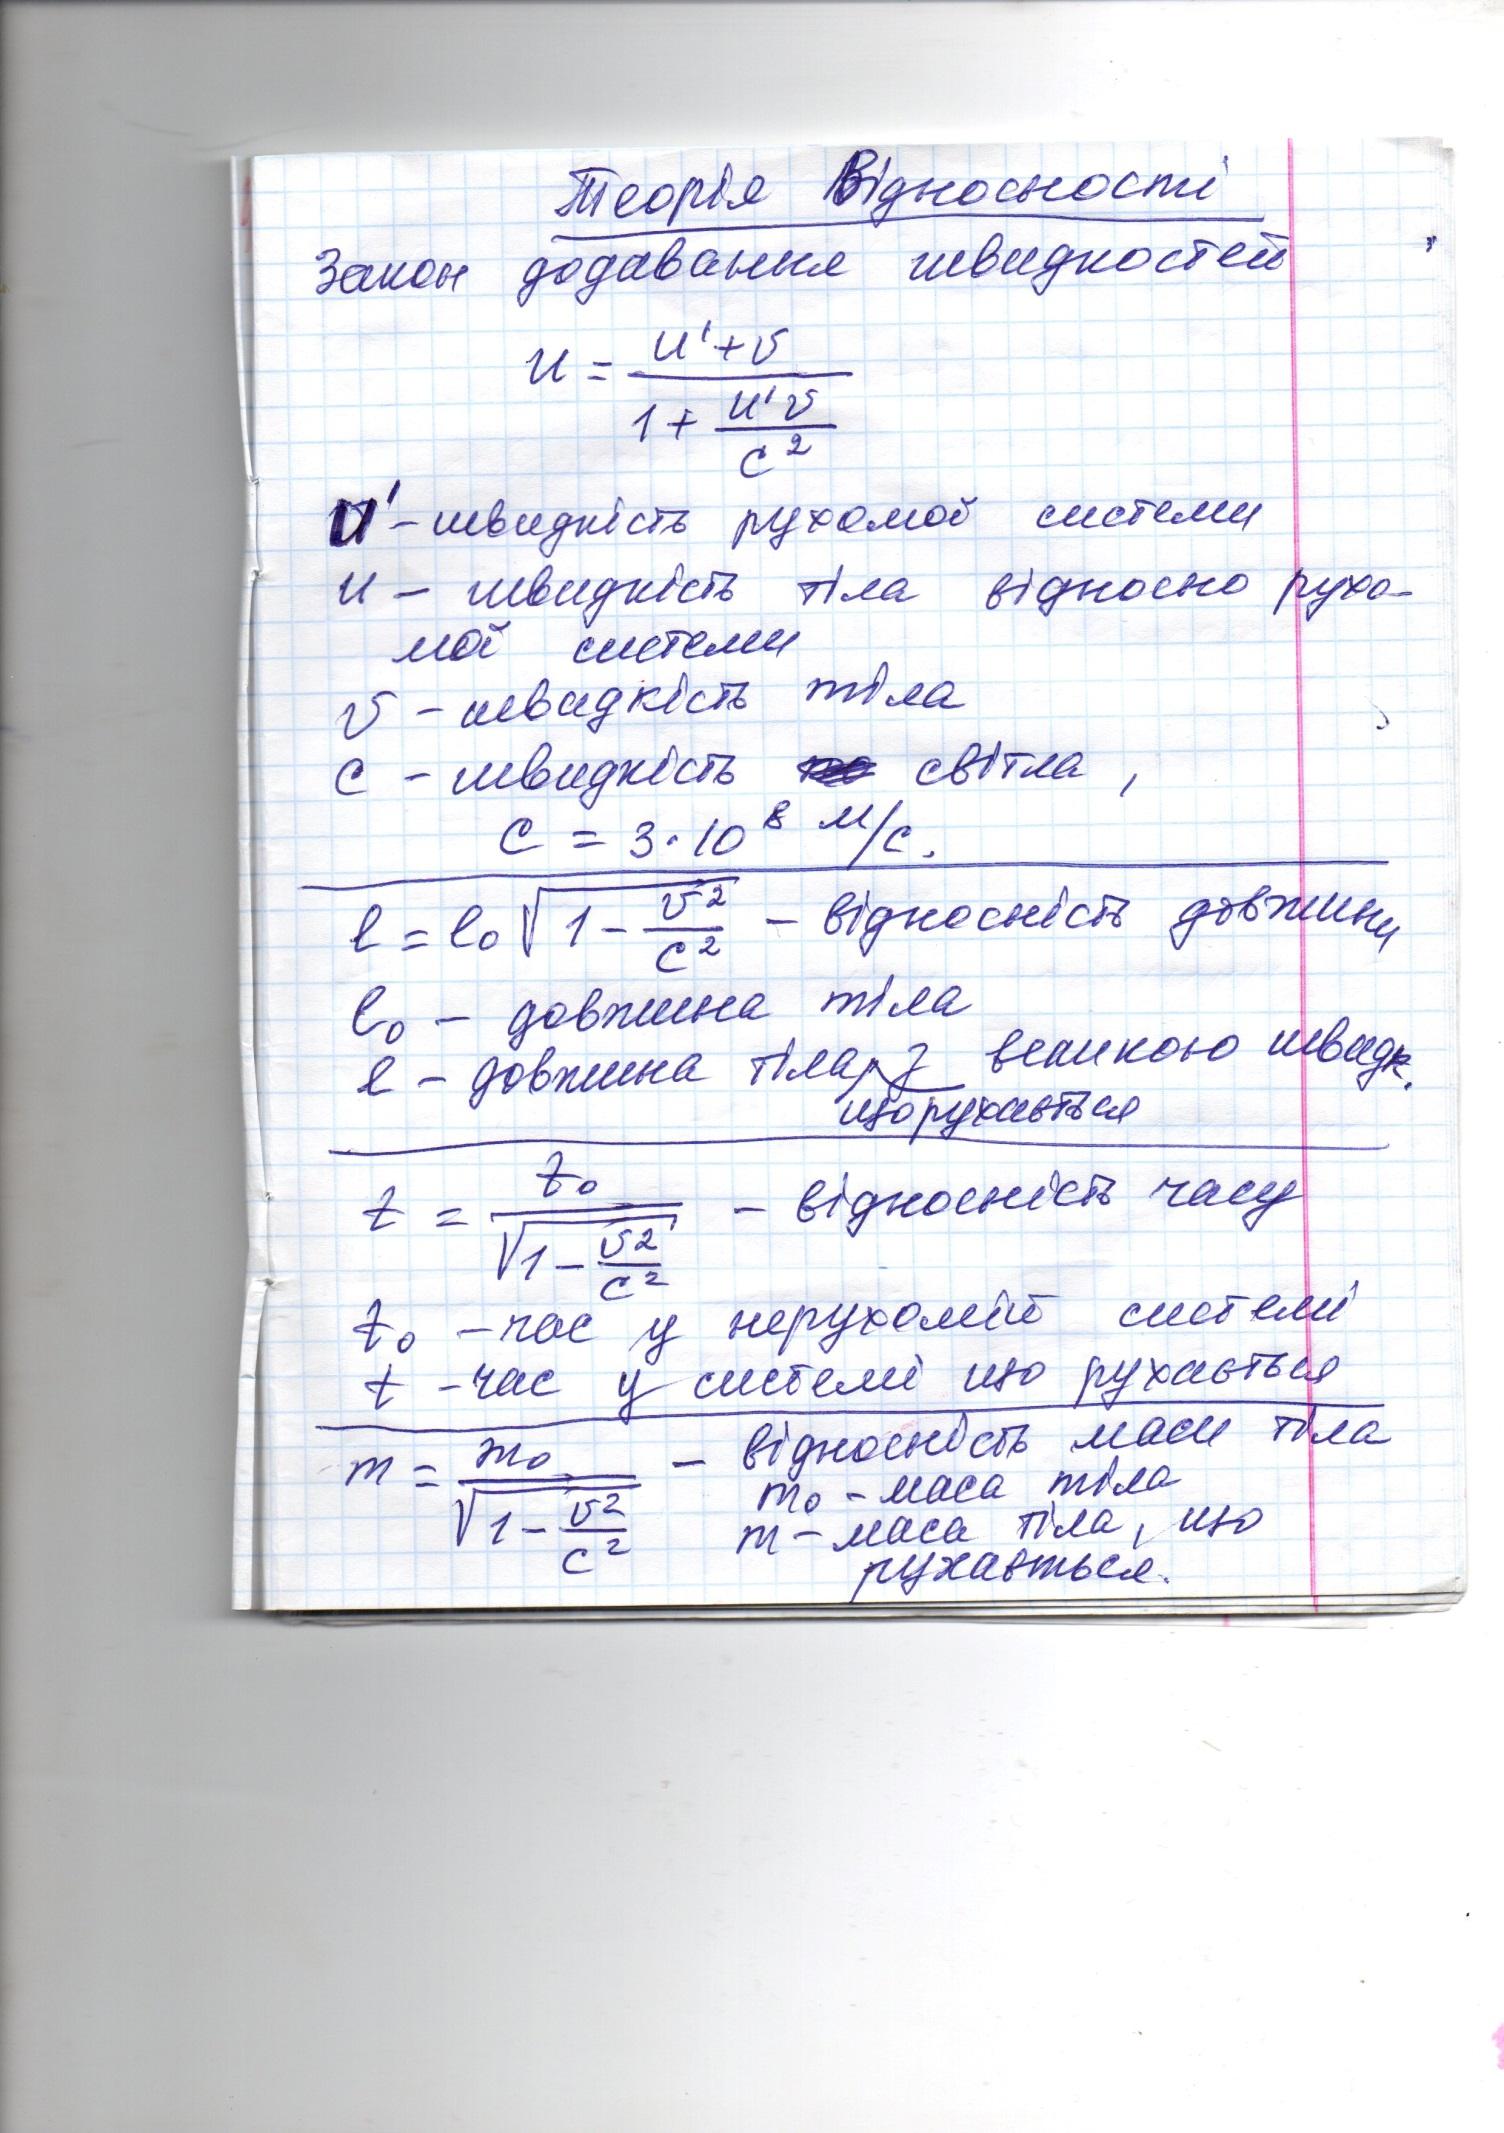 Теорія Відносності
Закон додавання швидкостей
u = (u' + v) / (1 + u'v/c²)
u' – швидкість рухомої системи
u – швидкість тіла відносно рухо-
мої системи
v – швидкість тіла
c – швидкість світла,
c = 3·10⁸ м/с.
l = l₀ √(1 – v²/c²) – відносність довжини
l₀ – довжина тіла
l – довжина тіла, з великою швидк.
що рухається
t = t₀ / √(1 – v²/c²) – відносність часу
t₀ – час у нерухомій системі
t – час у системі що рухається
m = m₀ / √(1 – v²/c²) – відносність маси тіла
m₀ – маса тіла
m – маса тіла, що
рухається.